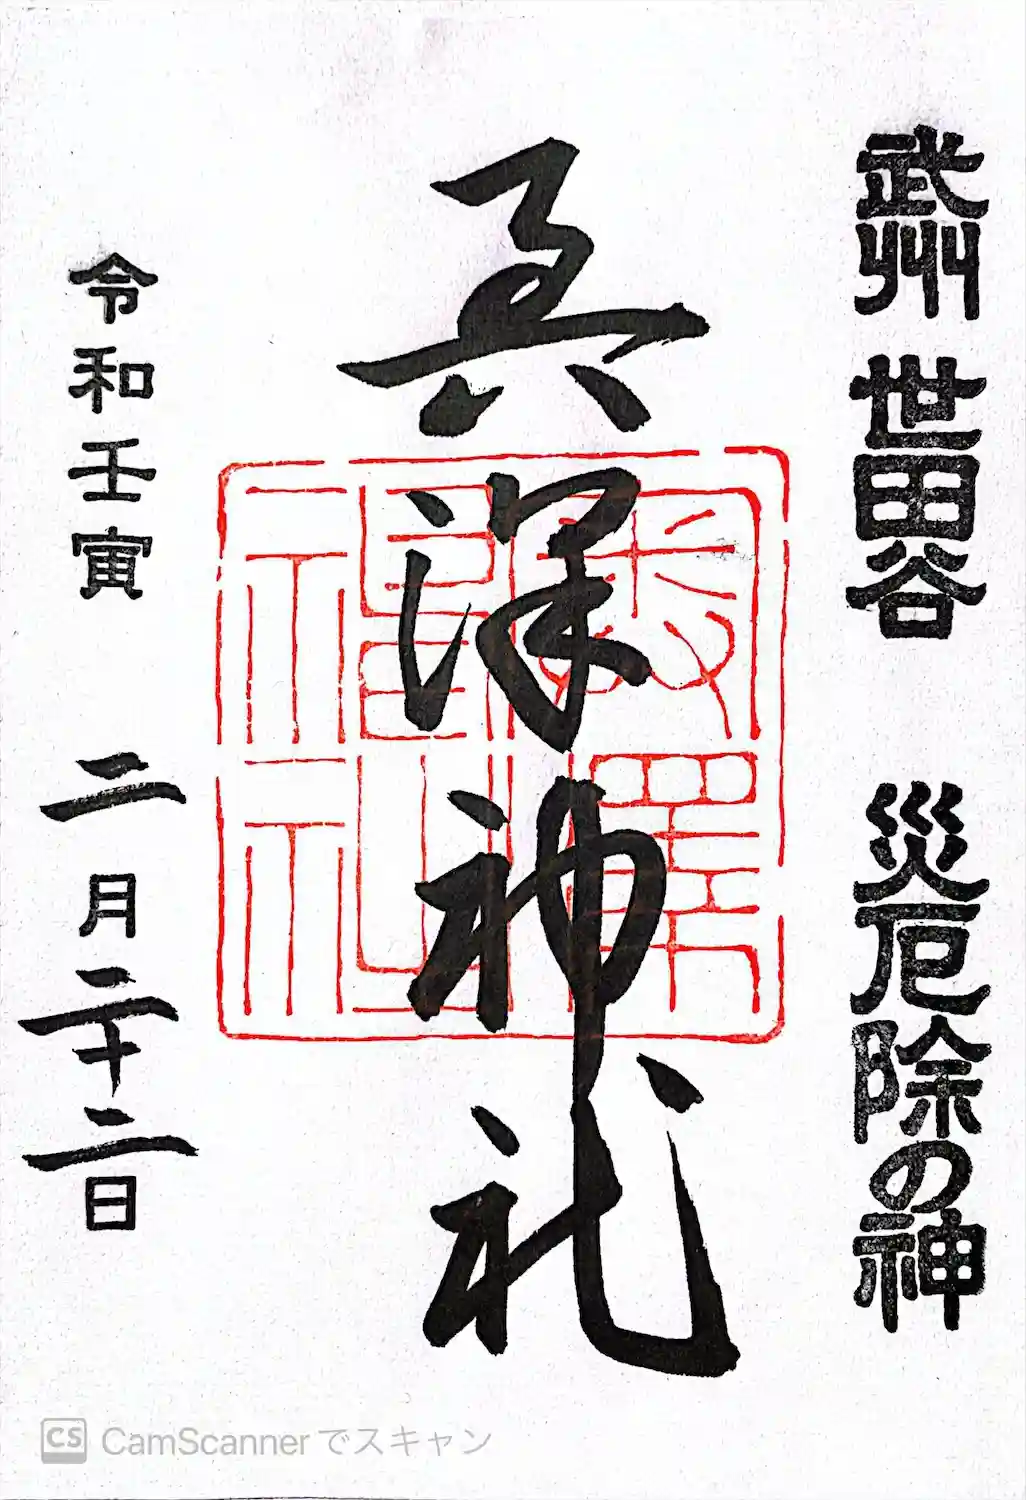 武州 世田谷 災厄除の神
奥澤神社
令和壬寅 二月二十二日
CS CamScannerでスキャン